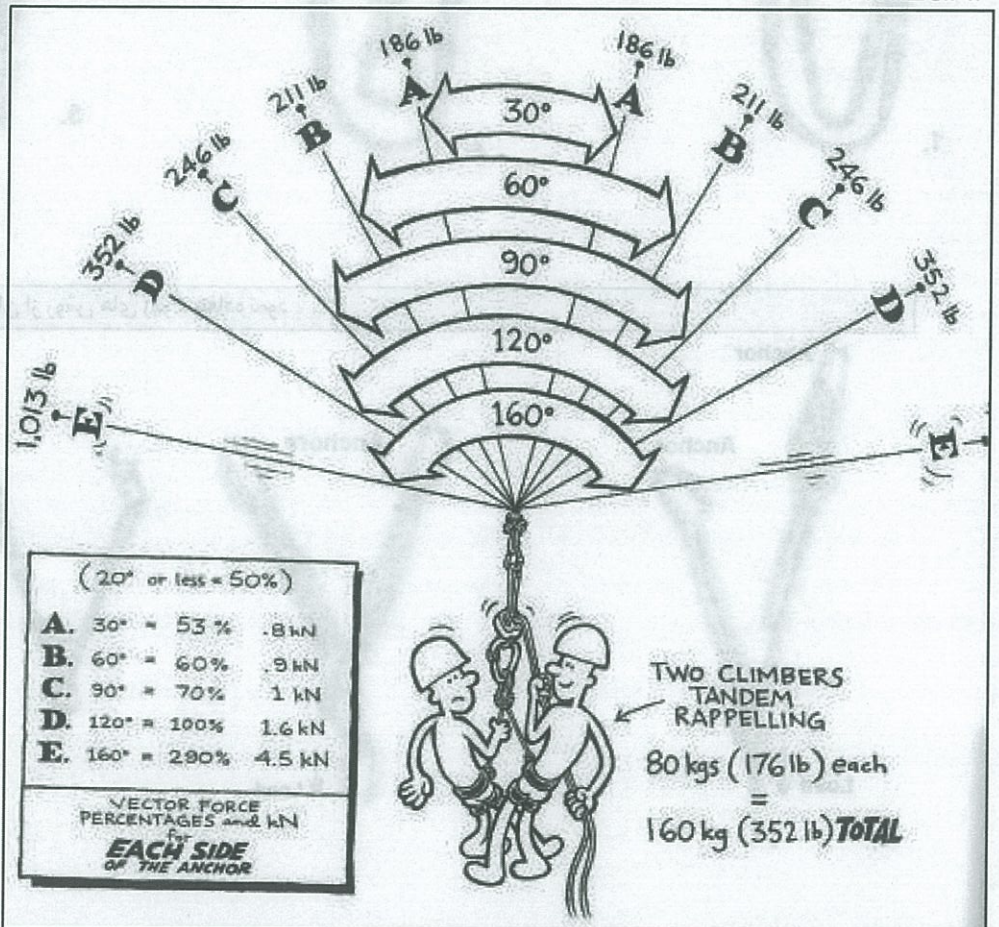 186 lb
186 lb
A
30°
A
211 lb
211 lb
B
60°
B
246 lb
246 lb
C
90°
C
352 lb
352 lb
D
120°
D
1,013 lb
E
160°
E
(20° or less = 50%)
A. 30° = 53% .8 kN
B. 60° = 60% .9 kN
C. 90° = 70% 1 kN
D. 120° = 100% 1.6 kN
E. 160° = 290% 4.5 kN
VECTOR FORCE
PERCENTAGES and kN
for
EACH SIDE
OF THE ANCHOR
TWO CLIMBERS
TANDEM
RAPPELLING
80 kgs (176 lb) each
=
160 kg (352 lb) TOTAL